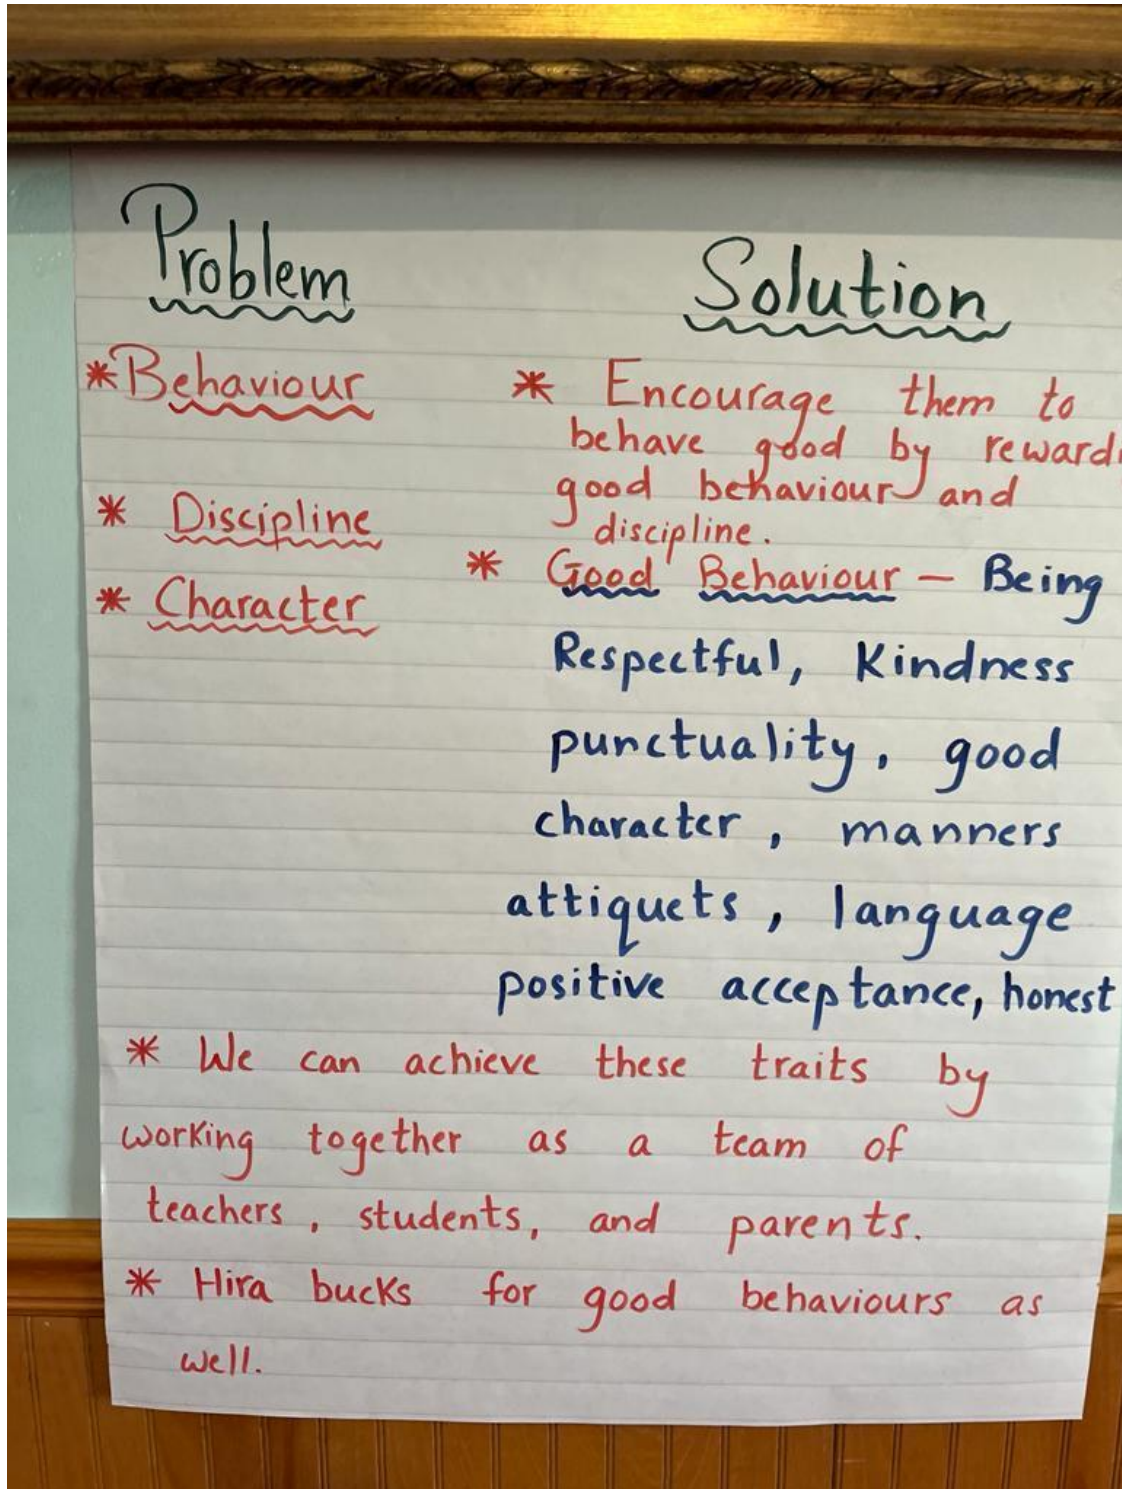 Problem
Solution
* Behaviour
* Encourage them to
behave good by reward
good behaviour and
discipline.
* Discipline
* Character
* Good Behaviour – Being
Respectful, Kindness
punctuality, good
character, manners
attiquets, language
positive acceptance, honest
* We can achieve these traits by
working together as a team of
teachers, students, and parents.
* Hira bucks for good behaviours as
well.